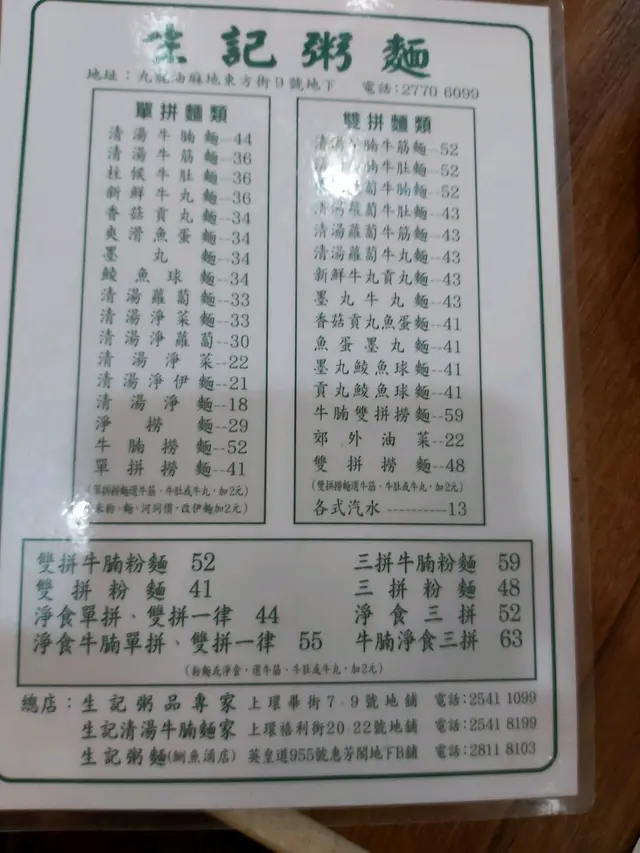 生記粥麵
地址：九龍油麻地東方街9號地下 電話:2770 6099
單拼麵類
清湯牛腩麵--44
清湯牛筋麵--36
柱候牛肚麵--36
新鮮牛丸麵--36
香菇貢丸麵--34
爽滑魚蛋麵--34
墨丸麵--34
鯪魚球麵--34
清湯蘿蔔麵--33
清湯淨菜麵--33
清湯淨蘿蔔--30
清湯淨菜--22
清湯淨伊麵--21
清湯淨麵--18
淨撈麵--29
牛腩撈麵--52
單拼撈麵--41
(單拼撈麵選牛筋、牛肚或牛丸，加2元)
(米粉、麵、河同價，改伊麵加2元)
雙拼麵類
清湯牛腩牛筋麵--52
牛腩牛肚麵--52
蘿蔔牛腩麵--52
清湯蘿蔔牛肚麵--43
清湯蘿蔔牛筋麵--43
清湯蘿蔔牛丸麵--43
新鮮牛丸貢丸麵--43
墨丸牛丸麵--43
香菇貢丸魚蛋麵--41
魚蛋墨丸麵--41
墨丸鯪魚球麵--41
貢丸鯪魚球麵--41
牛腩雙拼撈麵--59
郊外油菜--22
雙拼撈麵--48
(雙拼撈麵選牛筋、牛肚或牛丸，加2元)
各式汽水----------13
雙拼牛腩粉麵 52 三拼牛腩粉麵 59
雙拼粉麵 41 三拼粉麵 48
淨食單拼、雙拼一律 44 淨食三拼 52
淨食牛腩單拼、雙拼一律 55 牛腩淨食三拼 63
(粉麵或淨食，選牛筋、牛肚或牛丸，加2元)
總店：生記粥品專家 上環畢街7-9號地舖 電話:2541 1099
生記清湯牛腩麵家 上環禧利街20-22號地舖 電話:2541 8199
生記粥麵(鰂魚涌店) 英皇道955號惠芳閣地下B舖 電話:2811 8103